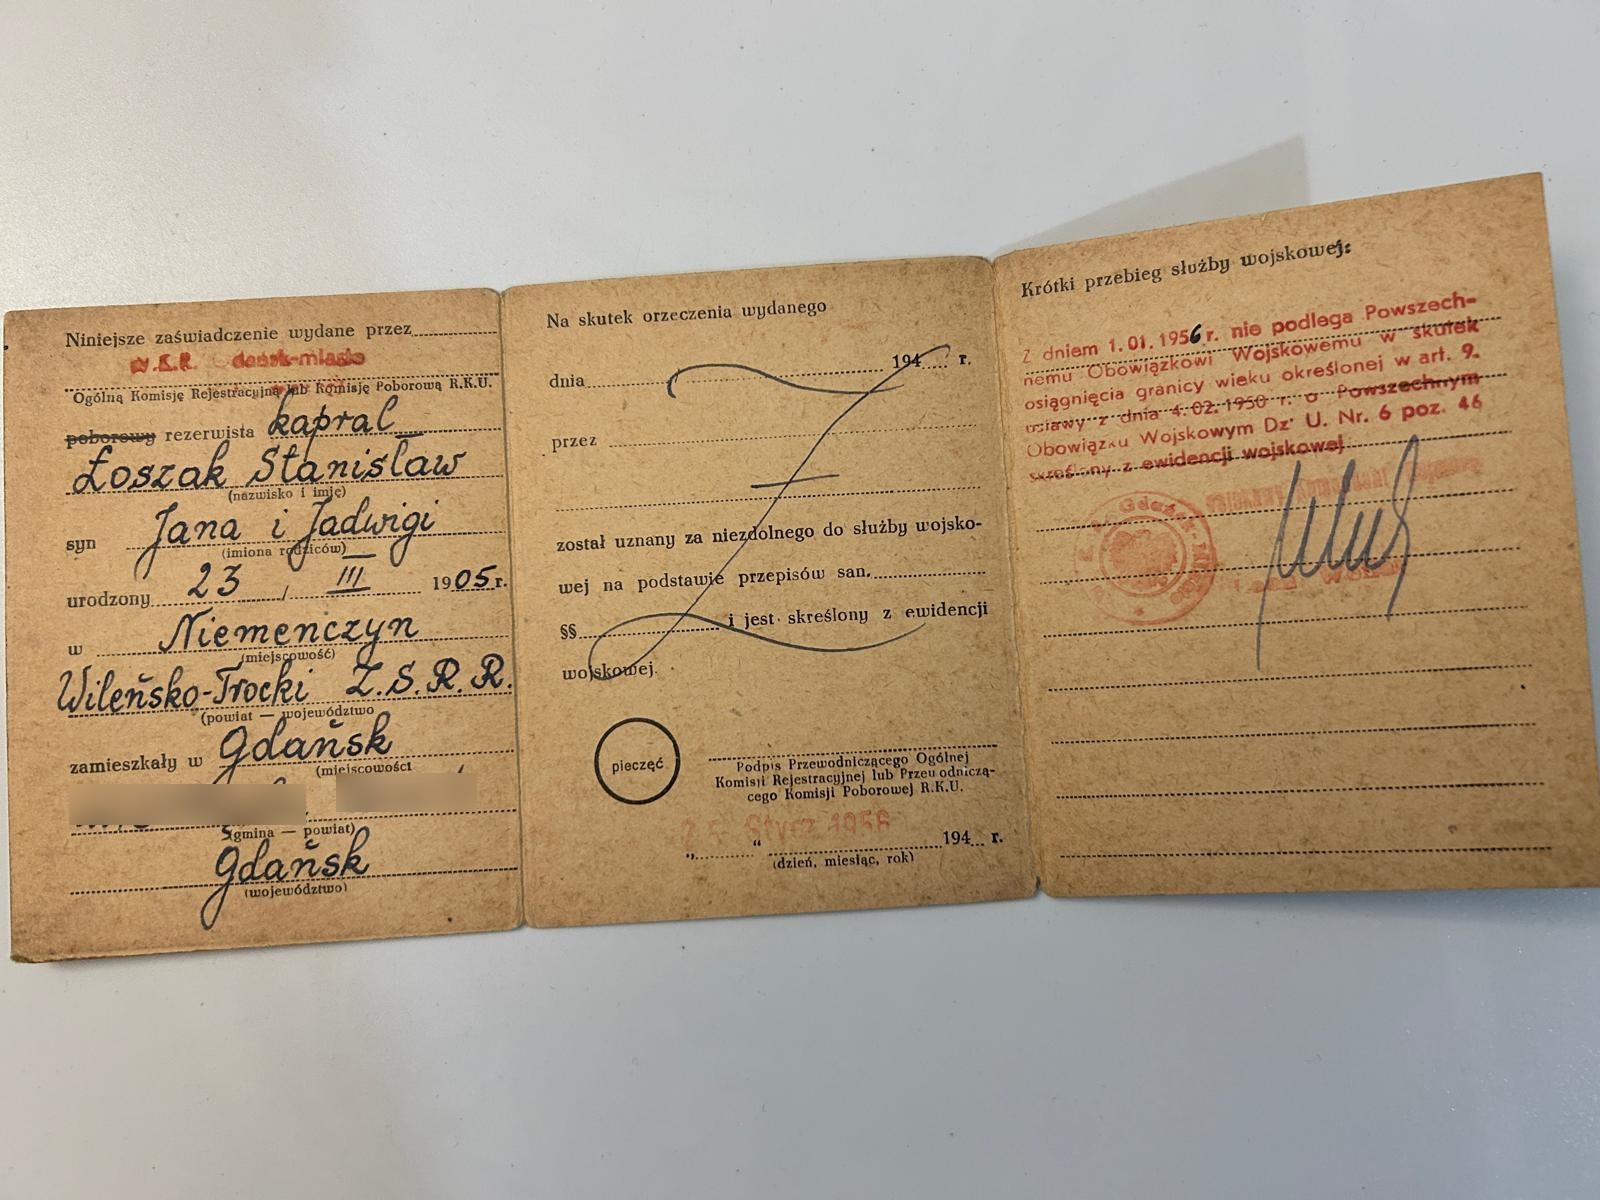 Niniejsze zaświadczenie wydane przez
W.K.R. Gdańsk-miasto
Ogólną Komisję Rejestracyjną lub Komisję Poborową R.K.U.
poborowy rezerwista kapral
Łoszak Stanisław
(nazwisko i imię)
syn Jana i Jadwigi
(imiona rodziców)
urodzony 23 / III 1905 r.
w Niemenczyn
(miejscowość)
Wileńsko-Trocki Z.S.R.R.
(powiat — województwo
zamieszkały w Gdańsk
(miejscowości
(gmina — powiat)
Gdańsk
(województwo)
Na skutek orzeczenia wydanego
dnia 194 r.
przez
został uznany za niezdolnego do służby wojsko-
wej na podstawie przepisów san.
§§ i jest skreślony z ewidencji
wojskowej.
pieczęć
Podpis Przewodniczącego Ogólnej
Komisji Rejestracyjnej lub Przewodniczą-
cego Komisji Poborowej R.K.U.
Stycz 1956
„ “ 194 r.
(dzień, miesiąc, rok)
Krótki przebieg służby wojskowej:
Z dniem 1.01.1956 r. nie podlega Powszech-
nemu Obowiązkowi Wojskowemu w skutek
osiągnięcia granicy wieku określonej w art. 9.
ustawy z dnia 4.02.1950 r. o Powszechnym
Obowiązku Wojskowym Dz' U. Nr. 6 poz. 46
skreślony z ewidencji wojskowej